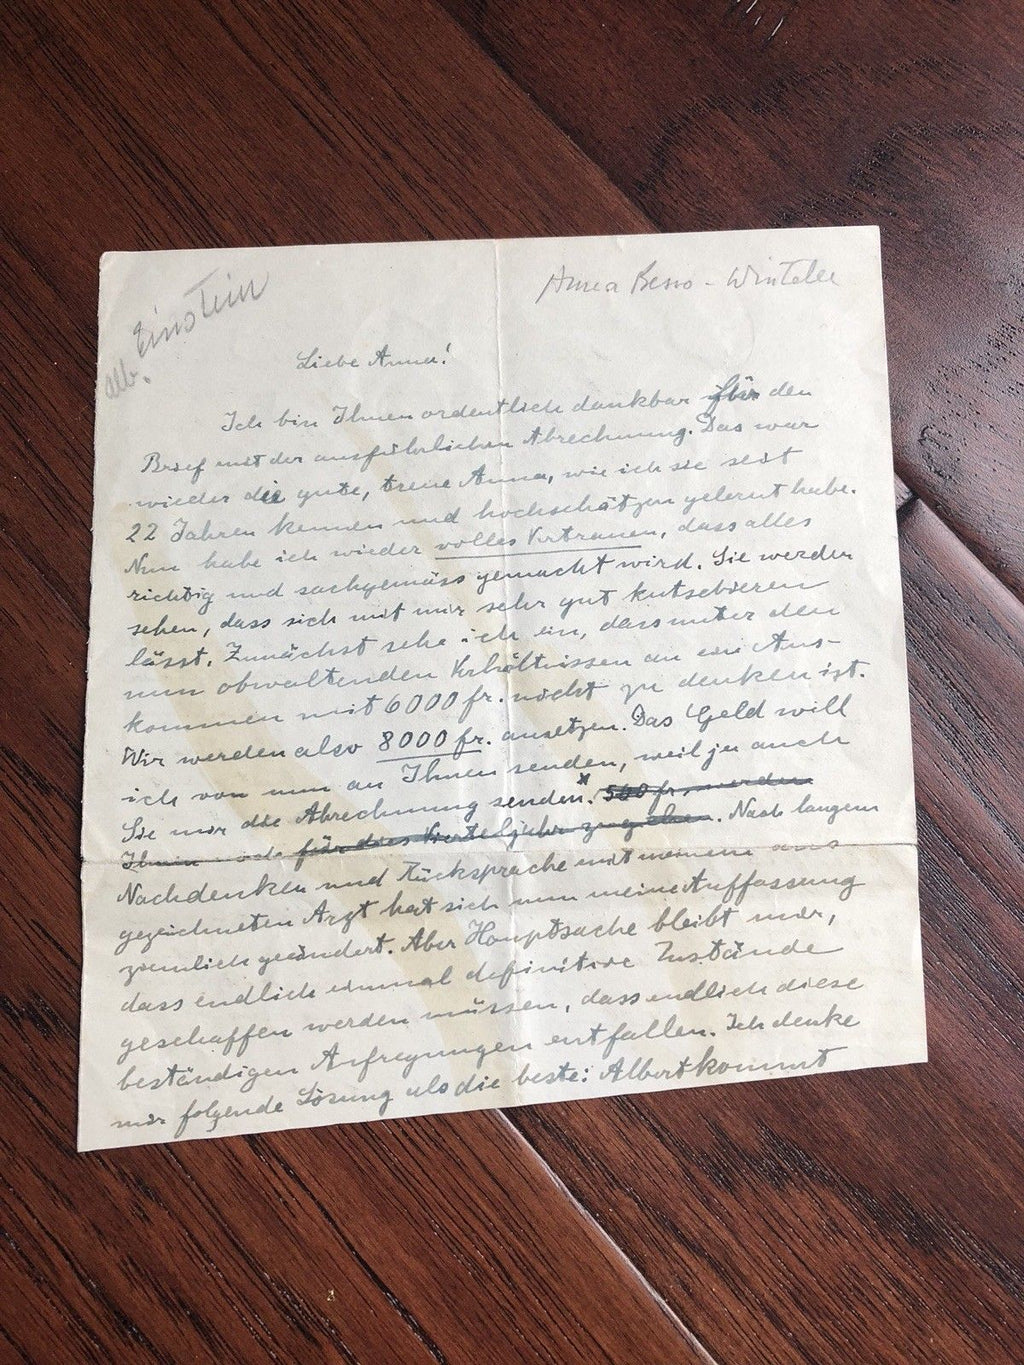 alb. Einstein
Anna Besso - Winteler
Liebe Anna!
Ich bin Ihnen ordentlich dankbar für den
Brief mit der ausführlichen Abrechnung. Das war
wieder die gute, treue Anna, wie ich sie seit
22 Jahren kennen und hochschätzen gelernt habe.
Nun habe ich wieder volles Vertrauen, dass alles
richtig und sachgemäss gemacht wird. Sie werden
sehen, dass sich mit mir sehr gut kutschieren
lässt. Zunächst sehe ich ein, dass unter den
nun obwaltenden Verhältnissen an ein Aus-
kommen mit 6000 fr. nicht zu denken ist.
Wir werden also 8000 fr. ansetzen. Das Geld will
ich von nun an Ihnen senden, weil ja auch
Sie mir die Abrechnung senden.* 500 fr. werden
Ihnen noch für dies Vierteljahr zugehen. Nach langem
Nachdenken und Rücksprache mit meinem aus
gezeichneten Arzt hat sich nun meine Auffassung
ziemlich geändert. Aber Hauptsache bleibt mir,
dass endlich einmal definitive Zustände
geschaffen werden müssen, dass endlich diese
beständigen Aufregungen entfallen. Ich denke
mir folgende Lösung als die beste: Albert kommt